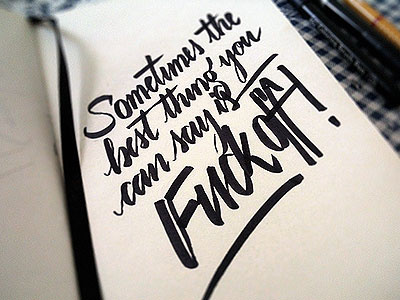 Sometimes the
best thing you
can say is
"Fuck off!